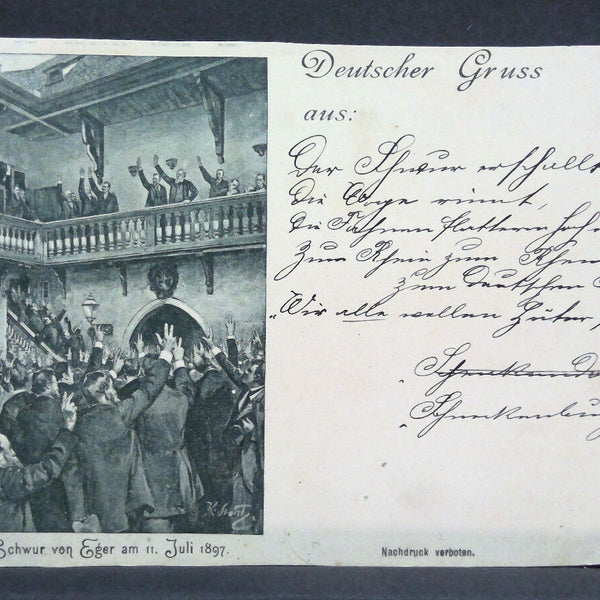 Deutscher Gruss
aus:
Der Schwur erschallt
die Woge rinnt,
die Fahnen flattern hoch
Zum Rhein zum Rhein
zum deutschen
„Wir alle wollen Hüter
Schenkendo
Schneckenbur
Schwur von Eger am 11. Juli 1897.
Nachdruck verboten.